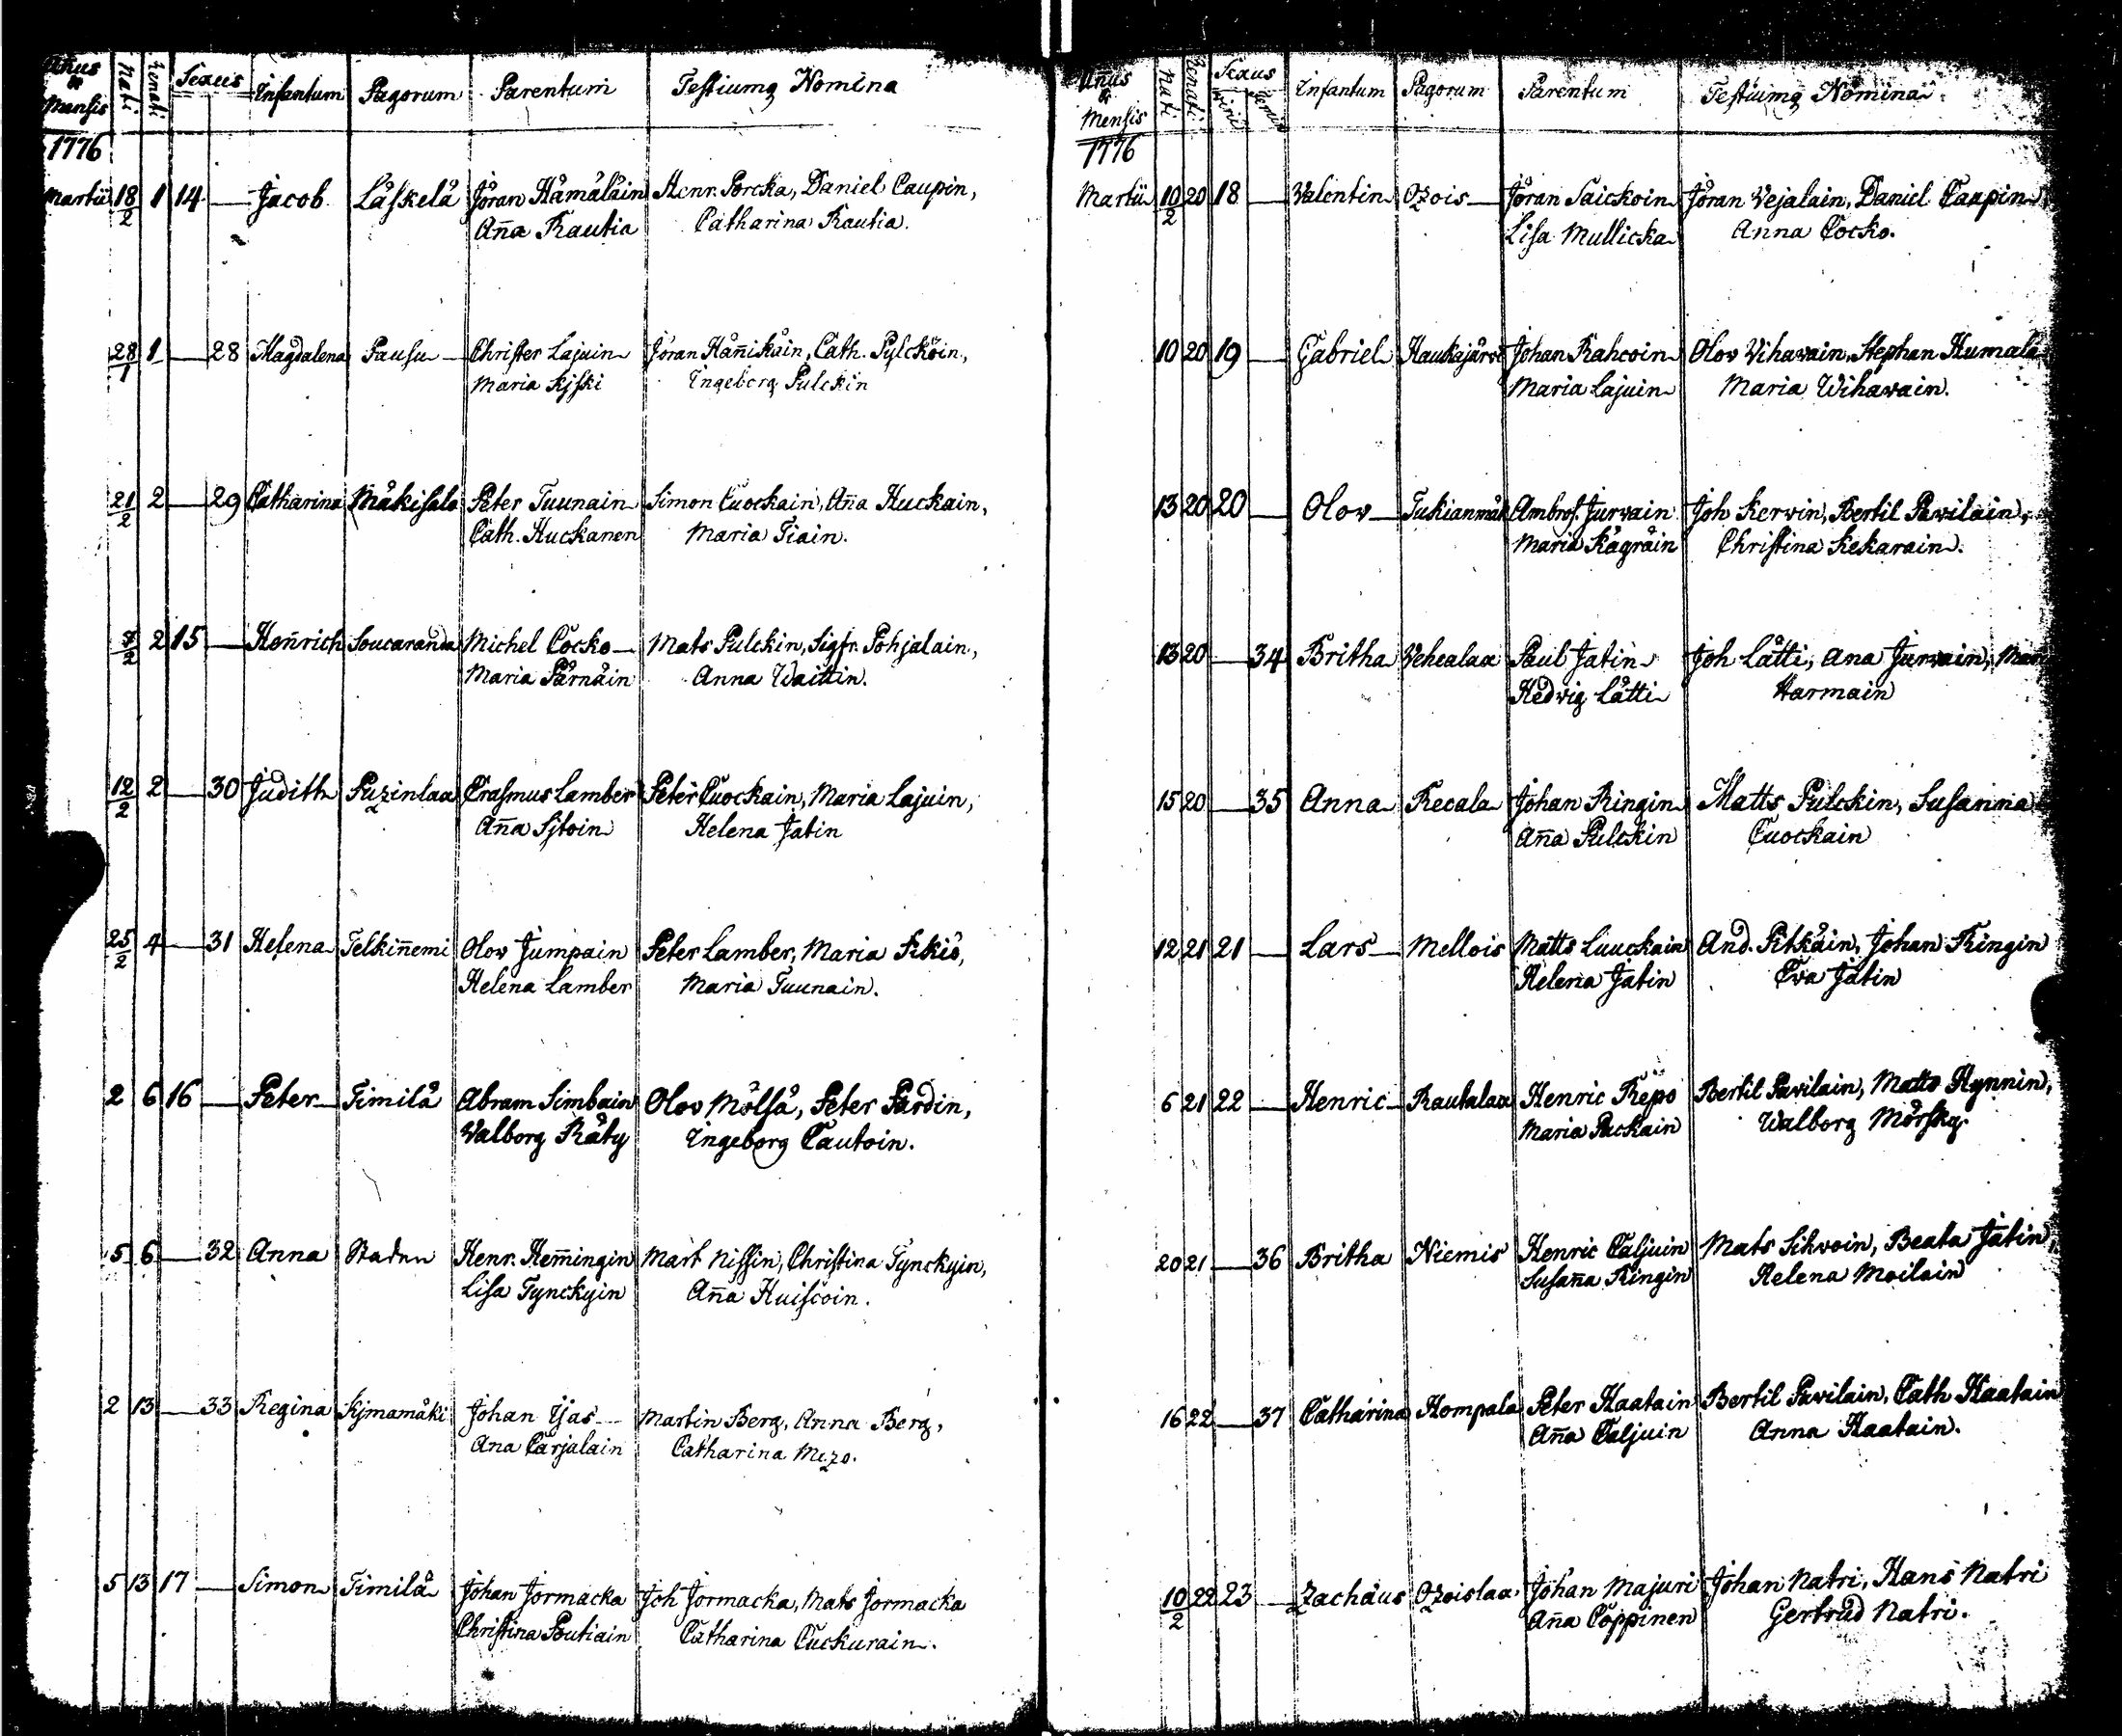 Añus & Mensis Nati Renati Sexus Infantum Pagorum Parentum Testiumq Nomina
1776
Martii 18/2 1 14 — Jacob Läskelä Jöran Hämäläin Henr. Porcka, Daniel Caupin,
Aña Rautia Catharina Rautia.
28/1 1 — 28 Magdalena Pausu Christer Lajuin Jöran Häñikäin, Cath. Pylcköin,
Maria Kjski Ingeborg Pulckin
21/2 2 — 29 Catharina Mäkisalo Peter Tuunain Simon Cuockain, Aña Huckain,
Cath. Huckanen Maria Tiain.
2 15 — Heñrich Soucaranda Michel Cocko Mats Pulckin, Sigfr. Pohjalain,
Maria Pärnäin Anna Waittin.
12/2 2 — 30 Judith Puzinlaa Erasmus Lamber Peter Cuockain, Maria Lajuin,
Aña Sjtoin Helena Jatin
25/2 4 — 31 Helena Telkiñemi Olov Jumpain Peter Lamber, Maria
Helena Lamber Maria Tuunain.
2 6 16 — Peter Timilä Abram Simbain Olov Mölsä, Peter Pardin,
Valborg Räty Ingeborg Cautoin.
5 6 — 32 Anna Staden Henr. Hem̄ingin Mart Nissin, Christina Tynckyin,
Lisa Tynckyin Aña Huiscoin.
2 13 — 33 Regina Kjmamäki Johan Ijas Martin Berg, Anna Berg,
Ana Carjalain Catharina Mezo.
5 13 17 — Simon Timilä Johan Jormacka Joh Jormacka, Mats Jormacka
Christina Poutiain Catharina Cuckurain.
Añus & Mensis Nati Renati Sexus Infantum Pagorum Parentum Testiumq Nomina
1776
Martii 10/2 20 18 — Valentin Ozois Jöran Saickoin Jöran Vejalain, Daniel Caupin
Lisa Mullicka Anna Cocko.
10 20 19 — Gabriel Haukajärvi Johan Rahcoin Olov Vihavain, Stephan Humala
Maria Lajuin Maria Wihavain.
13 20 20 — Olov Tukianmäk Ambros. Jurvain Joh Kervin, Bertil Pavilain,
Maria Kägräin Christina Kekarain.
13 20 — 34 Britha Vehcalaa Paul Jatin Joh Lätti, Ana Jurvain, Mar
Hedvig Lätti Harmain
15 20 — 35 Anna Recala Johan Ringin Matts Pulckin, Susanna
Aña Pulckin Cuockain
12 21 21 — Lars Mellois Matts Luuckain And. Pitkäin, Johan Ringin
Helena Jatin Eva Jätin
6 21 22 — Henric Rautalaa Henric Repo Bertil Pavilain, Matts Hynnin,
Maria Packain Walborg Mörsky.
20 21 — 36 Britha Niemis Henric Caljuin Mats Sihvoin, Beata Jätin,
Susaña Ringin Helena Moilain
16 22 — 37 Catharina Hompala Peter Haatain Bertil Pavilain, Cath Haatain
Aña Caljuin Anna Haatain.
10/2 22 23 — Zachäus Ozoislaa Johan Majuri Johan Natri, Hans Natri
Aña Coppinen Gertrud Natri.